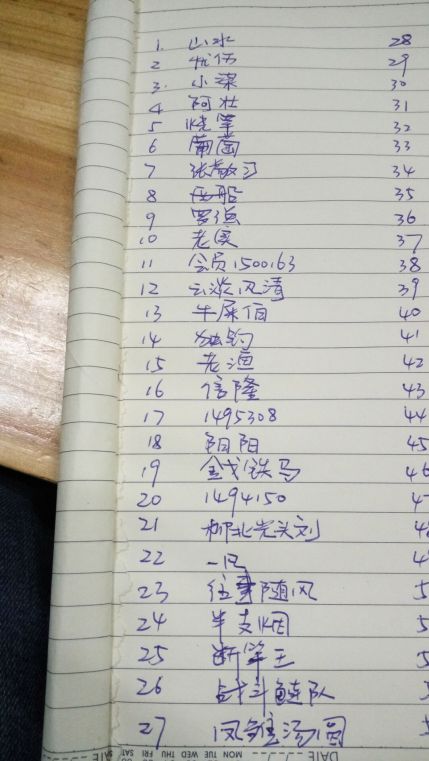 1. 山水 28
2 忧伤 29
3. 小溪 30
4 阿壮 31
5 烧笔 32
6 葡萄 33
7 张敬习 34
8 西船 35
9 罗强 36
10 老侯 37
11 会员1500163 38
12 云淡风清 39
13 牛屎佰 40
14 独钓 41
15 老渔 42
16 信隆 43
17 1495308 44
18 阴阳 45
19 金戈铁马 46
20 1494150
21 柳北光头刘
22 一风
23 往事随风
24 半支烟
25 断竿王
26 战斗鲢队
27 凤雏汤圆
DATE MON TUE WED THU FRI SAT DATE